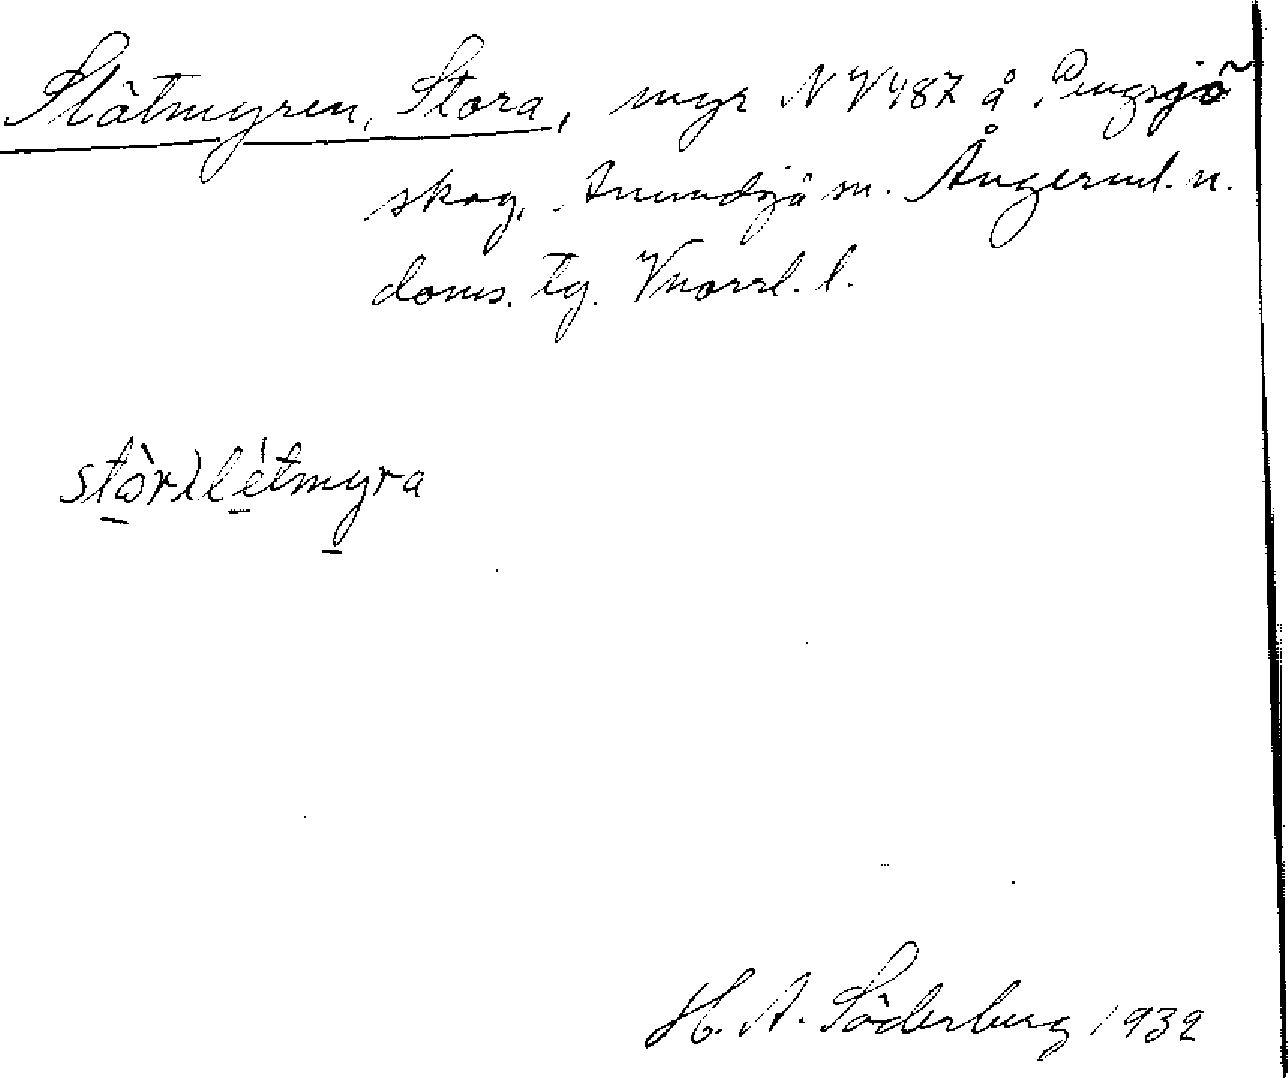 Slåtmyren, Stora, myr NV487 å Pengsjö
skog, Anundsjö sn. Ångerml. n.
doms. tg. Vnorrl. l.
H. A. Söderberg 1932